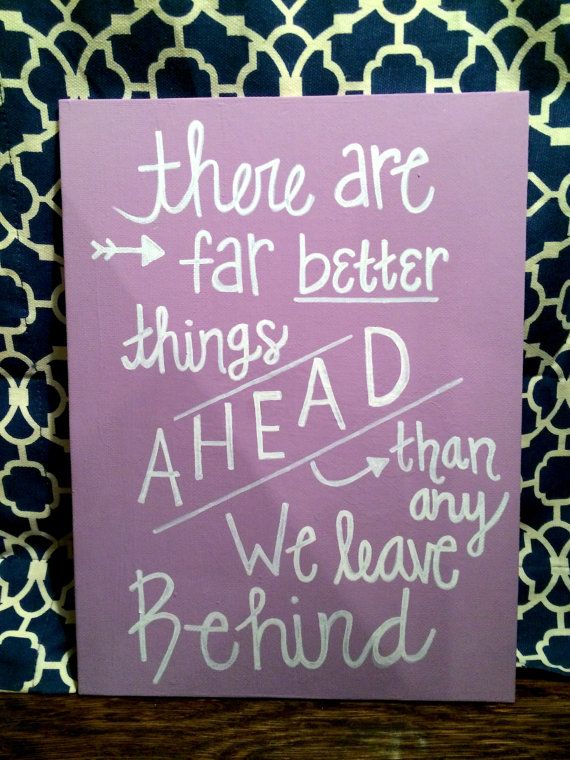 there are
far better
things
AHEAD
than
any
We leave
Behind